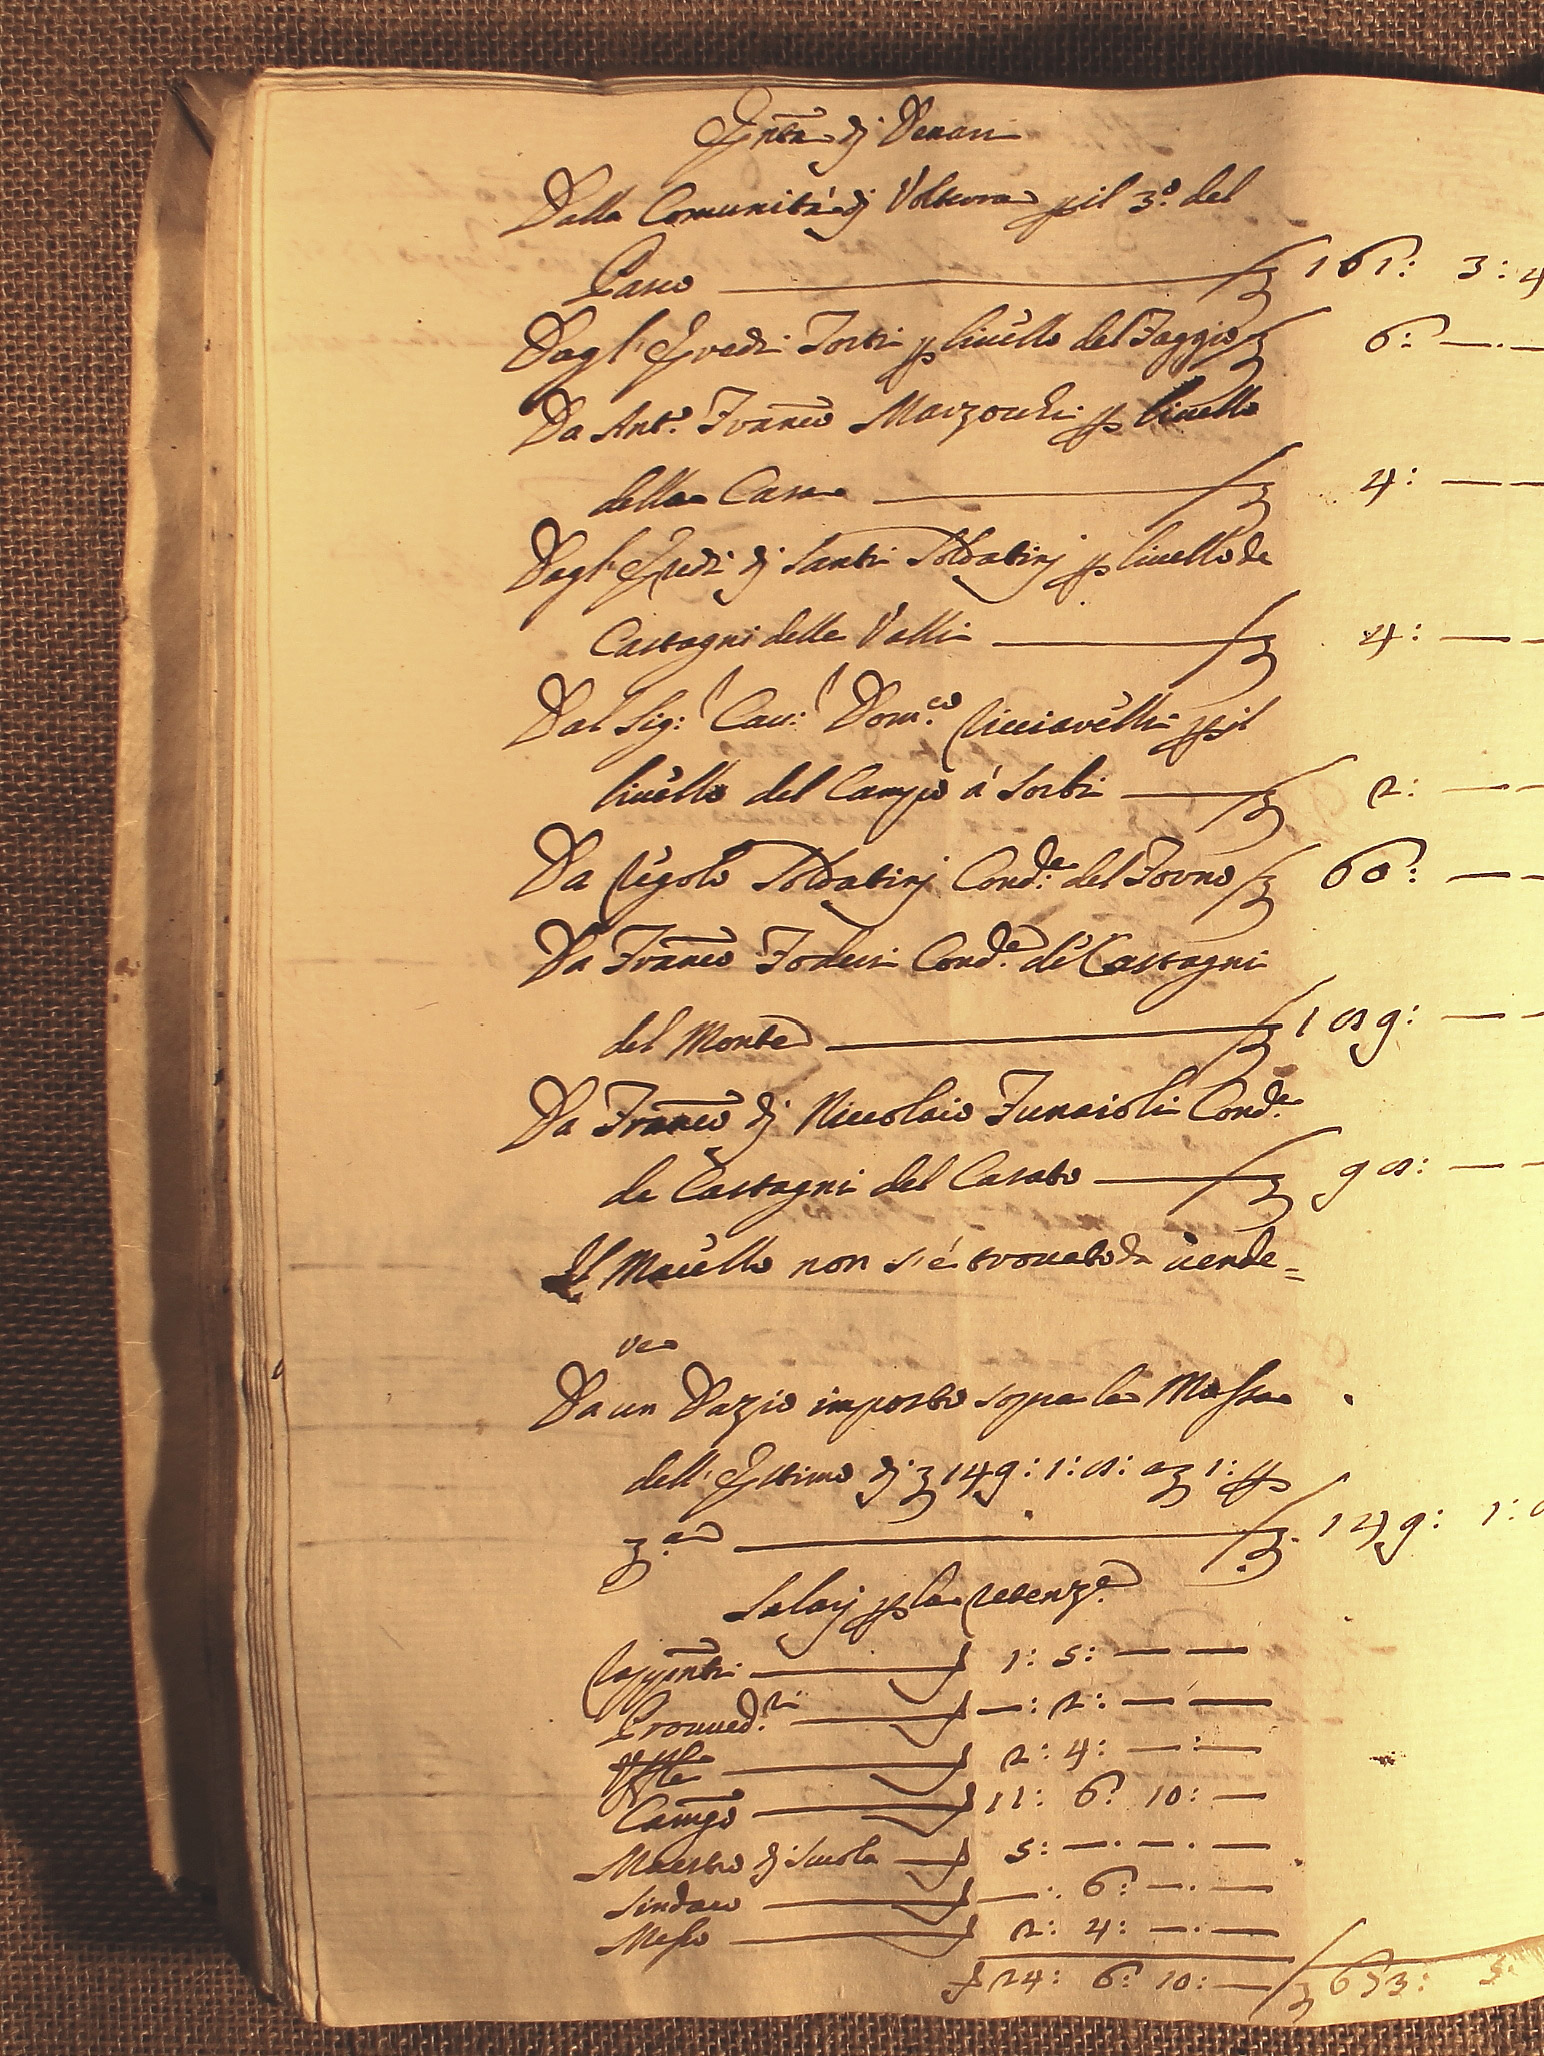 Entrã di Denari
Dalla Comunità di Volterra p il 3.º del
Pasco ——— £ 161: 3: 4
Dagl' Eredi Torti p livello del Faggio £ 6: —.—
Da Ant.º Franc̃o Marzocchi p livello
della Casa ——— £ 4: ——
Dagl' Eredi di Santi Soldatinj p livello de
Castagni delle Valli ——— £ 4: ——
Dal Sig: Cav: Dom.co Ricciarelli p il
livello del Campo à Sorbi ——— £ 2: ——
Da Regolo Soldatinj Cond.e del Forno £ 60: ——
Da Franc̃o Foderi Cond.e de Castagni
del Monte ——— £ 109: ——
Da Franc̃o di Niccolaio Funaioli Cond.e
de Castagni del Casato ——— £ 90: ——
Il Macello non s'è trovato da vende=
re
Da un Dazio imposto sopra la Massa
dell' Estimo di £ 149: 1: 0: a £ 1: p
£.a ——— £ 149: 1:
Salarj p la retenz.e
Rapp̃nti ——— 1: 5: ——
Provved.ri ——— —: 2: ——
——— 2: 4: —:—
Camg̃o ——— 11: 6: 10: —
Maestro di Scuola — 5: —.—.—
Sindaco ——— —: 6: —.—
Messo ——— 2: 4: —.—
24: 6: 10: — £ 653: 5: